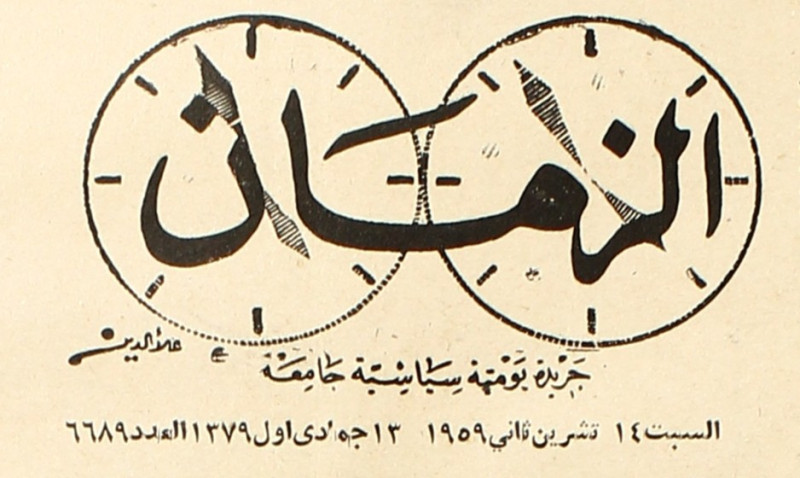 الزمان
علاء الدين
جَرْيدة يَوْميَّة سِيَاسْيَّة جَامِعَة
السبت ١٤ تشرين ثاني ١٩٥٩ ١٣ جمادى اول ١٣٧٩ العدد ٦٦٨٩